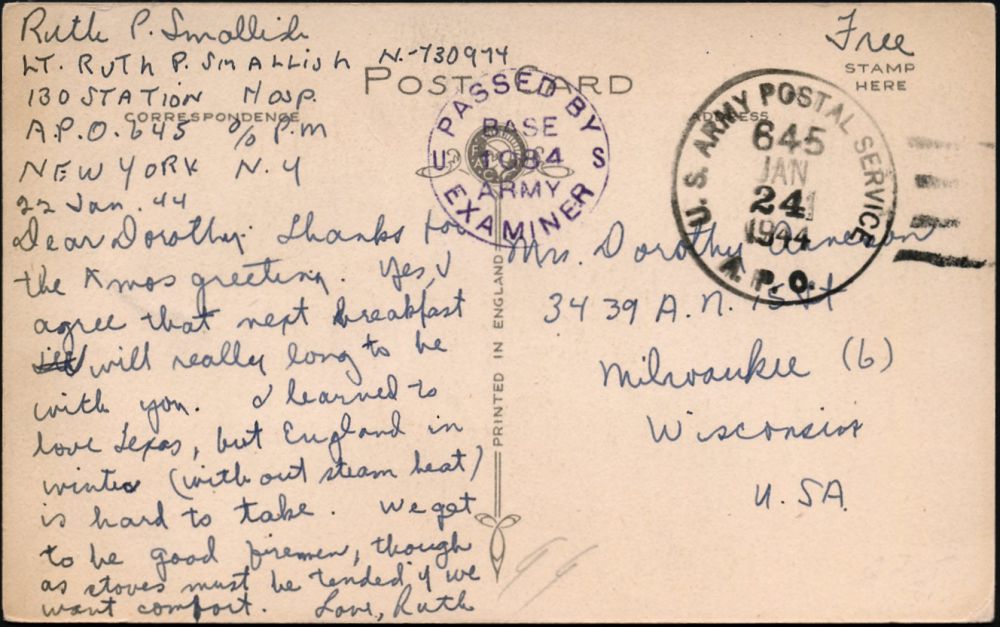 Ruth P. Smallish
LT. RUTH P. SMALLISH N-730974
130 STATION HOSP.
A.P.O. 645 % P.M
NEW YORK N.Y
22 Jan. 44
POST CARD
CORRESPONDENCE
ADDRESS
Free
STAMP
HERE
PASSED BY
BASE
U 1984 S
ARMY
EXAMINER
U. S. ARMY POSTAL SERVICE
645
JAN
24
1944
A. P. O.
Dear Dorothy: Thanks for
the Xmas greeting. Yes, I
agree that next breakfast
will really long to be
with you. I learned to
love Texas, but England in
winter (without steam heat)
is hard to take. We get
to be good firemen, though
as stoves must be tended if we
want comfort. Love, Ruth
PRINTED IN ENGLAND
Mrs. Dorothy
3439 A. N. 15 St
Milwaukee (6)
Wisconsin
U.SA.